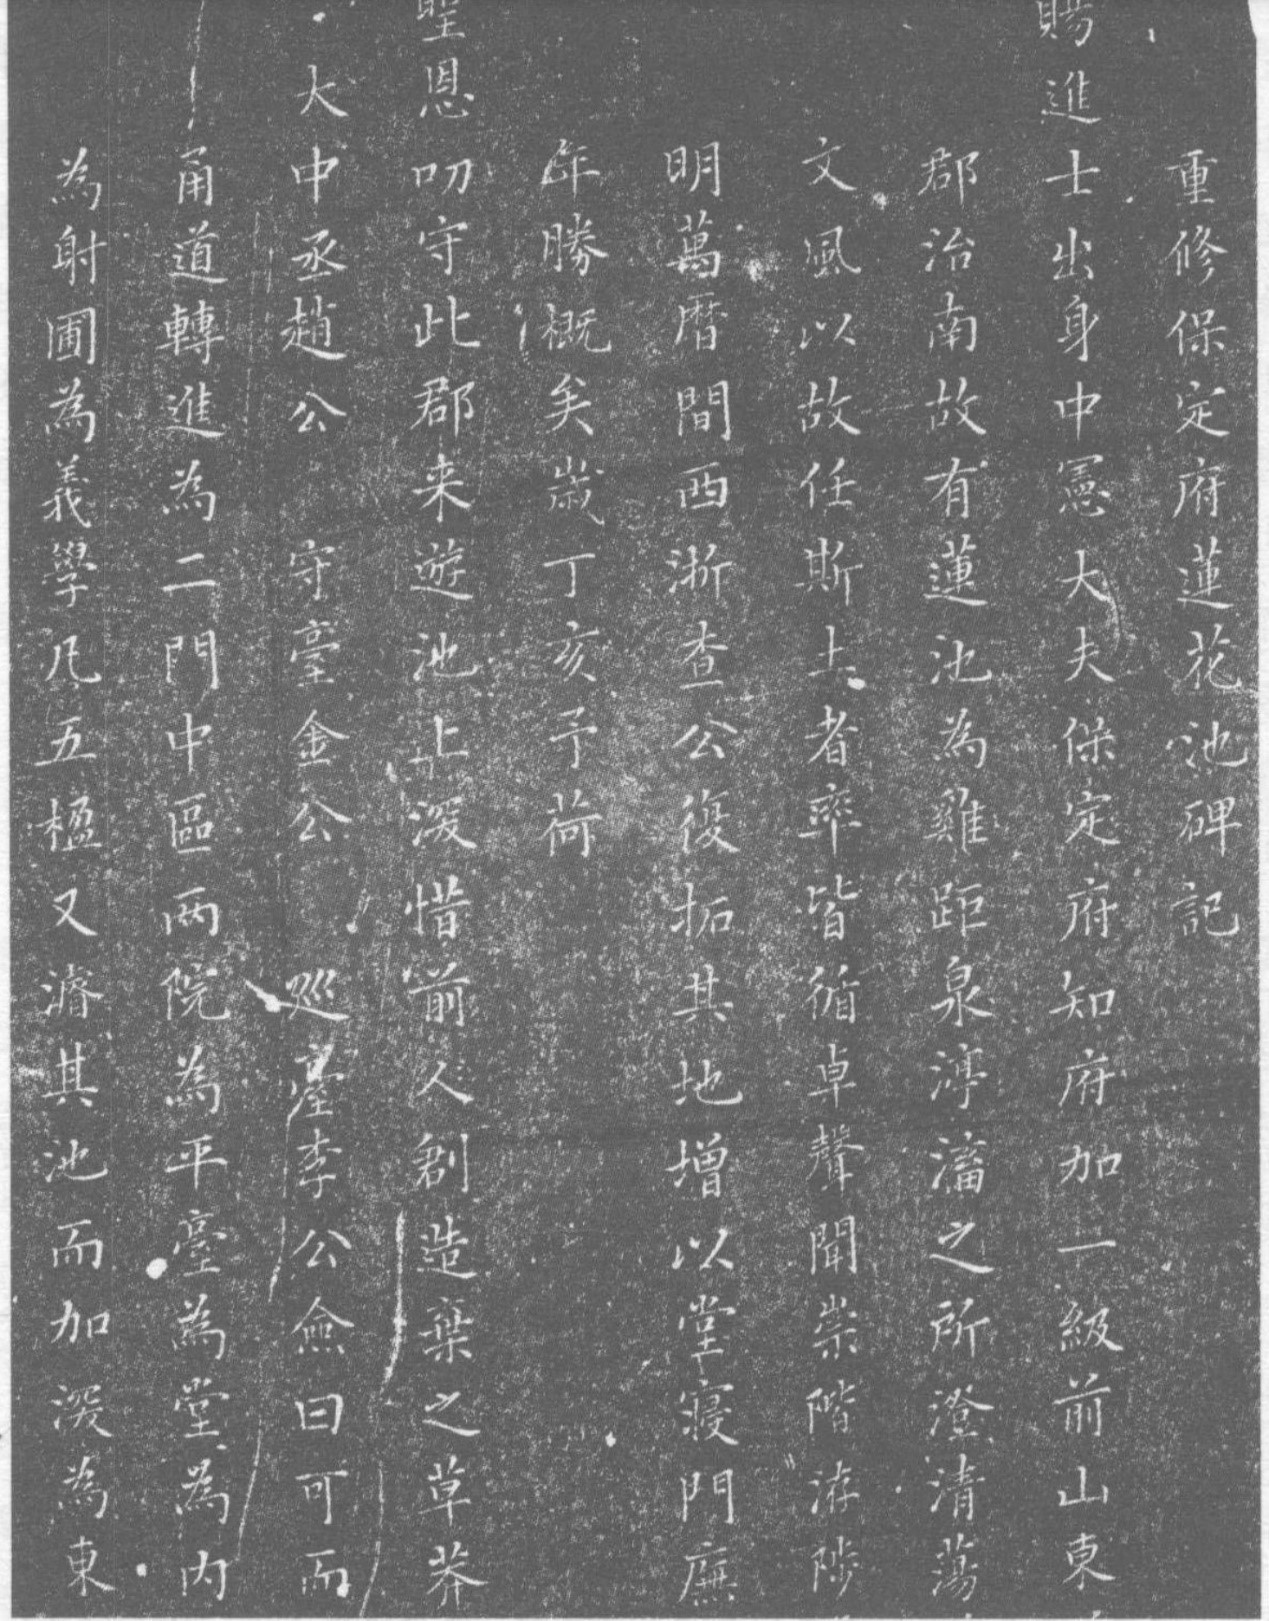 重修保定府蓮花池碑記
賜進士出身中憲大夫保定府知府加一級前山東
郡治南故有蓮池為雞距泉渟瀦之所澄清蕩
文風以故任斯土者率皆循卓聲聞崇階洊陟
明萬曆間西浙查公復拓其地增以堂寢門廡
年勝概矣歲丁亥予荷
聖恩叨守此郡来遊池上深惜前人創造棄之草莽
大中丞趙公 守臺金公 巡臺李公僉曰可而
甬道轉進為二門中區兩院為平臺為堂為內
為射圃為義學凡五楹又濬其池而加深為東